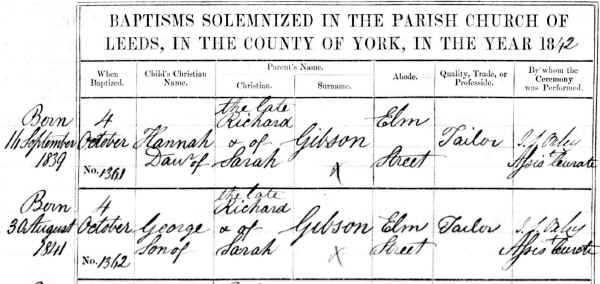 BAPTISMS SOLEMNIZED IN THE PARISH CHURCH OF
LEEDS, IN THE COUNTY OF YORK, IN THE YEAR 1842
When Baptized. Child's Christian Name. Parent's Name. Christian. Surname. Abode. Quality, Trade, or Professide. By whom the Ceremony was Performed.
Born
14 September
1839
4
October
No. 1361
Hannah
Daur. of
the late
Richard
& of
Sarah
Gibson
x
Elm
Street
Tailor
Assist Curate
Born
3 August
1841
4
October
No. 1362
George
Son of
the late
Richard
& of
Sarah
Gibson
x
Elm
Street
Tailor
Assist Curate